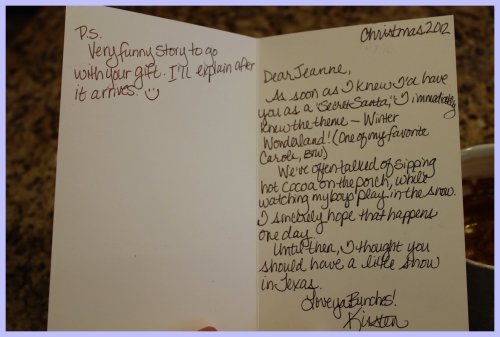 P.S.
Very funny story to go
with your gift. I'll explain after
it arrives. ☺
Christmas 2012
Dear Jeanne,
As soon as I knew I'd have
you as a "Secret Santa," I immediately
knew the theme – Winter
Wonderland! (One of my favorite
Carols, BTW)
We've often talked of sipping
hot cocoa on the porch, while
watching my boys play in the snow.
I sincerely hope that happens
one day.
Until then, I thought you
should have a little snow
in Texas.
Love ya Bunches!
Kirsten